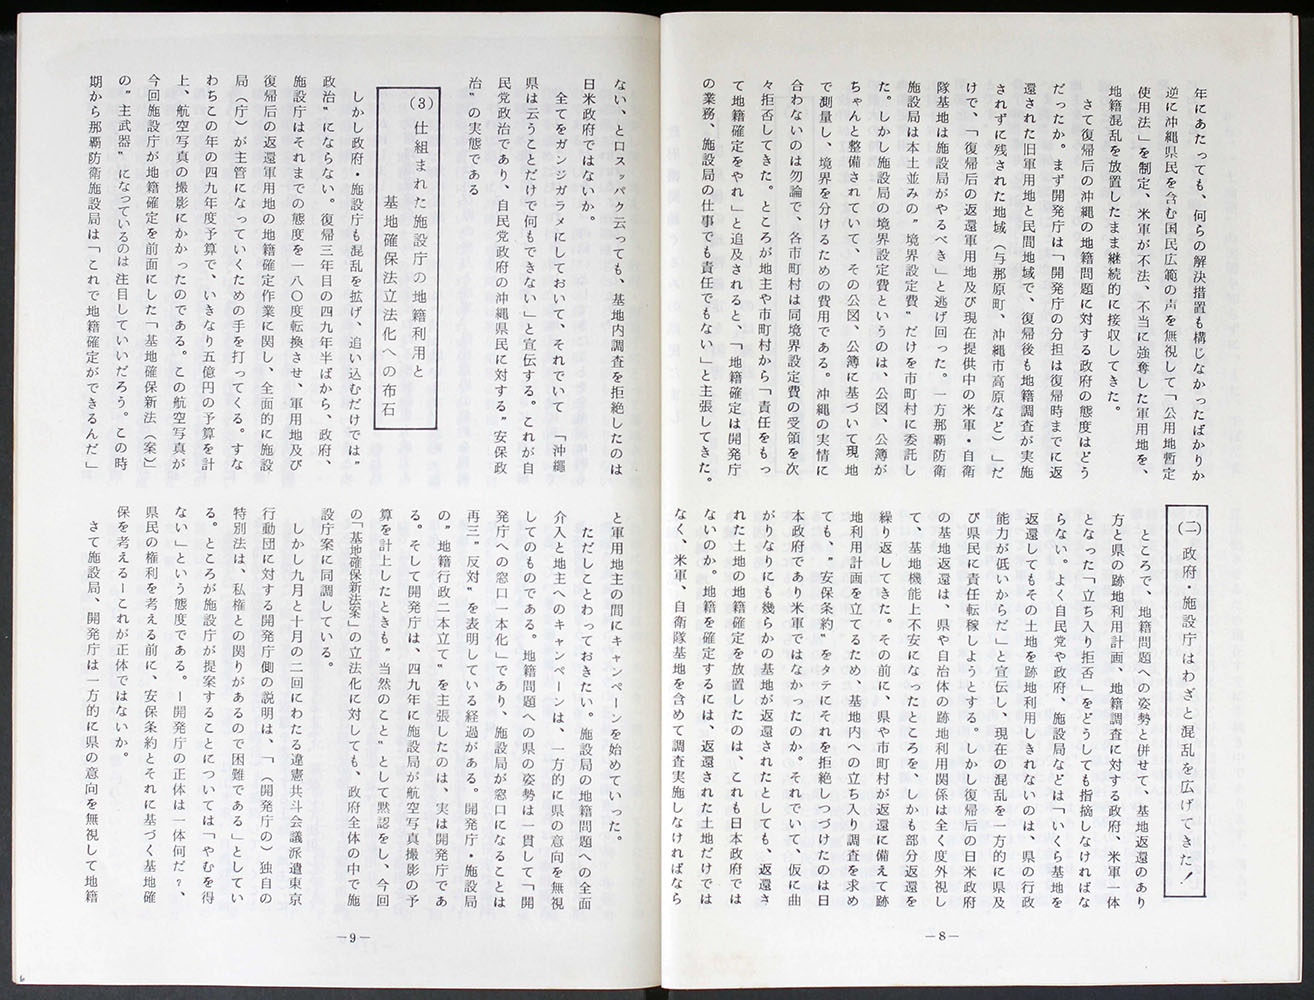 年にあたっても、何らの解決措置も構じなかったばかりか
逆に沖縄県民を含む国民広範の声を無視して「公用地暫定
使用法」を制定、米軍が不法、不当に強奪した軍用地を、
地籍混乱を放置したまま継続的に接収してきた。
さて復帰后の沖縄の地籍問題に対する政府の態度はどう
だったか。まず開発庁は「開発庁の分担は復帰時までに返
還された旧軍用地と民間地域で、復帰後も地籍調査が実施
されずに残された地域(与那原町、沖縄市高原など)」だ
けで、「復帰后の返還軍用地及び現在提供中の米軍・自衛
隊基地は施設局がやるべき」と逃げ回った。一方那覇防衛
施設局は本土並みの"境界設定費"だけを市町村に委託し
た。しかし施設局の境界設定費というのは、公図、公簿が
ちゃんと整備されていて、その公図、公簿に基づいて現地
で測量し、境界を分けるための費用である。沖縄の実情に
合わないのは勿論で、各市町村は同境界設定費の受領を次
々拒否してきた。ところが地主や市町村から「責任をもっ
て地籍確定をやれ」と追及されると、「地籍確定は開発庁
の業務、施設局の仕事でも責任でもない」と主張してきた。
(二) 政府・施設庁はわざと混乱を広げてきた!
ところで、地籍問題への姿勢と併せて、基地返還のあり
方と県の跡地利用計画、地籍調査に対する政府、米軍一体
となった「立ち入り拒否」をどうしても指摘しなければな
らない。よく自民党や政府、施設局などは「いくら基地を
返還してもその土地を跡地利用しきれないのは、県の行政
能力が低いからだ」と宣伝し、現在の混乱を一方的に県及
び県民に責任転稼しようとする。しかし復帰后の日米政府
の基地返還は、県や自治体の跡地利用関係は全く度外視し
て、基地機能上不安になったところを、しかも部分返還を
繰り返してきた。その前に、県や市町村が返還に備えて跡
地利用計画を立てるため、基地内への立ち入り調査を求め
ても、"安保条約"をタテにそれを拒絶しつづけたのは日
本政府であり米軍ではなかったのか。それでいて、仮に曲
がりなりにも幾らかの基地が返還されたとしても、返還さ
れた土地の地籍確定を放置したのは、これも日本政府では
ないのか。地籍を確定するには、返還された土地だけでは
なく、米軍、自衛隊基地を含めて調査実施しなければなら
—8—
ない、と口スッパク云っても、基地内調査を拒絶したのは
日米政府ではないか。
全てをガンジガラメにしておいて、それでいて「沖縄
県は云うことだけで何もできない」と宣伝する。これが自
民党政治であり、自民党政府の沖縄県民に対する"安保政
治"の実態である
(3) 仕組まれた施設庁の地籍利用と
基地確保法立法化への布石
しかし政府・施設庁も混乱を拡げ、追い込むだけでは"
政治"にならない。復帰三年目の四九年半ばから、政府、
施設庁はそれまでの態度を一八〇度転換させ、軍用地及び
復帰后の返還軍用地の地籍確定作業に関し、全面的に施設
局(庁)が主管になっていくための手を打ってくる。すな
わちこの年の四九年度予算で、いきなり五億円の予算を計
上、航空写真の撮影にかかったのである。この航空写真が
今回施設庁が地籍確定を前面にした「基地確保新法(案)」
の"主武器"になっているのは注目していいだろう。この時
期から那覇防衛施設局は「これで地籍確定ができるんだ」
と軍用地主の間にキャンペーンを始めていった。
ただしことわっておきたい。施設局の地籍問題への全面
介入と地主へのキャンペーンは、一方的に県の意向を無視
してのものである。地籍問題への県の姿勢は一貫して「開
発庁への窓口一本化」であり、施設局が窓口になることは
再三"反対"を表明している経過がある。開発庁・施設局
の"地籍行政二本立て"を主張したのは、実は開発庁であ
る。そして開発庁は、四九年に施設局が航空写真撮影の予
算を計上したときも"当然のこと"として黙認をし、今回
の「基地確保新法案」の立法化に対しても、政府全体の中で施
設庁案に同調している。
しかし九月と十月の二回にわたる違憲共斗会議派遣東京
行動団に対する開発庁側の説明は、「(開発庁の)独自の
特別法は、私権との関りがあるので困難である」としてい
る。ところが施設庁が提案することについては「やむを得
ない」という態度である。ー開発庁の正体は一体何だ?、
県民の権利を考える前に、安保条約とそれに基づく基地確
保を考えるーこれが正体ではないか。
さて施設局、開発庁は一方的に県の意向を無視して地籍
—9—